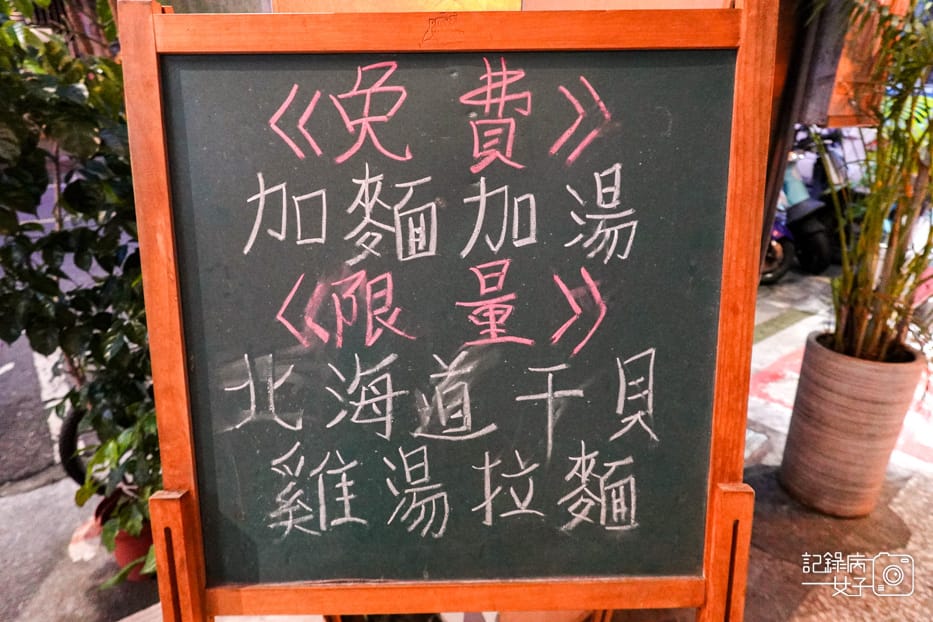 《免費》
加麵加湯
《限量》
北海道干貝
雞湯拉麵
記錄病女子